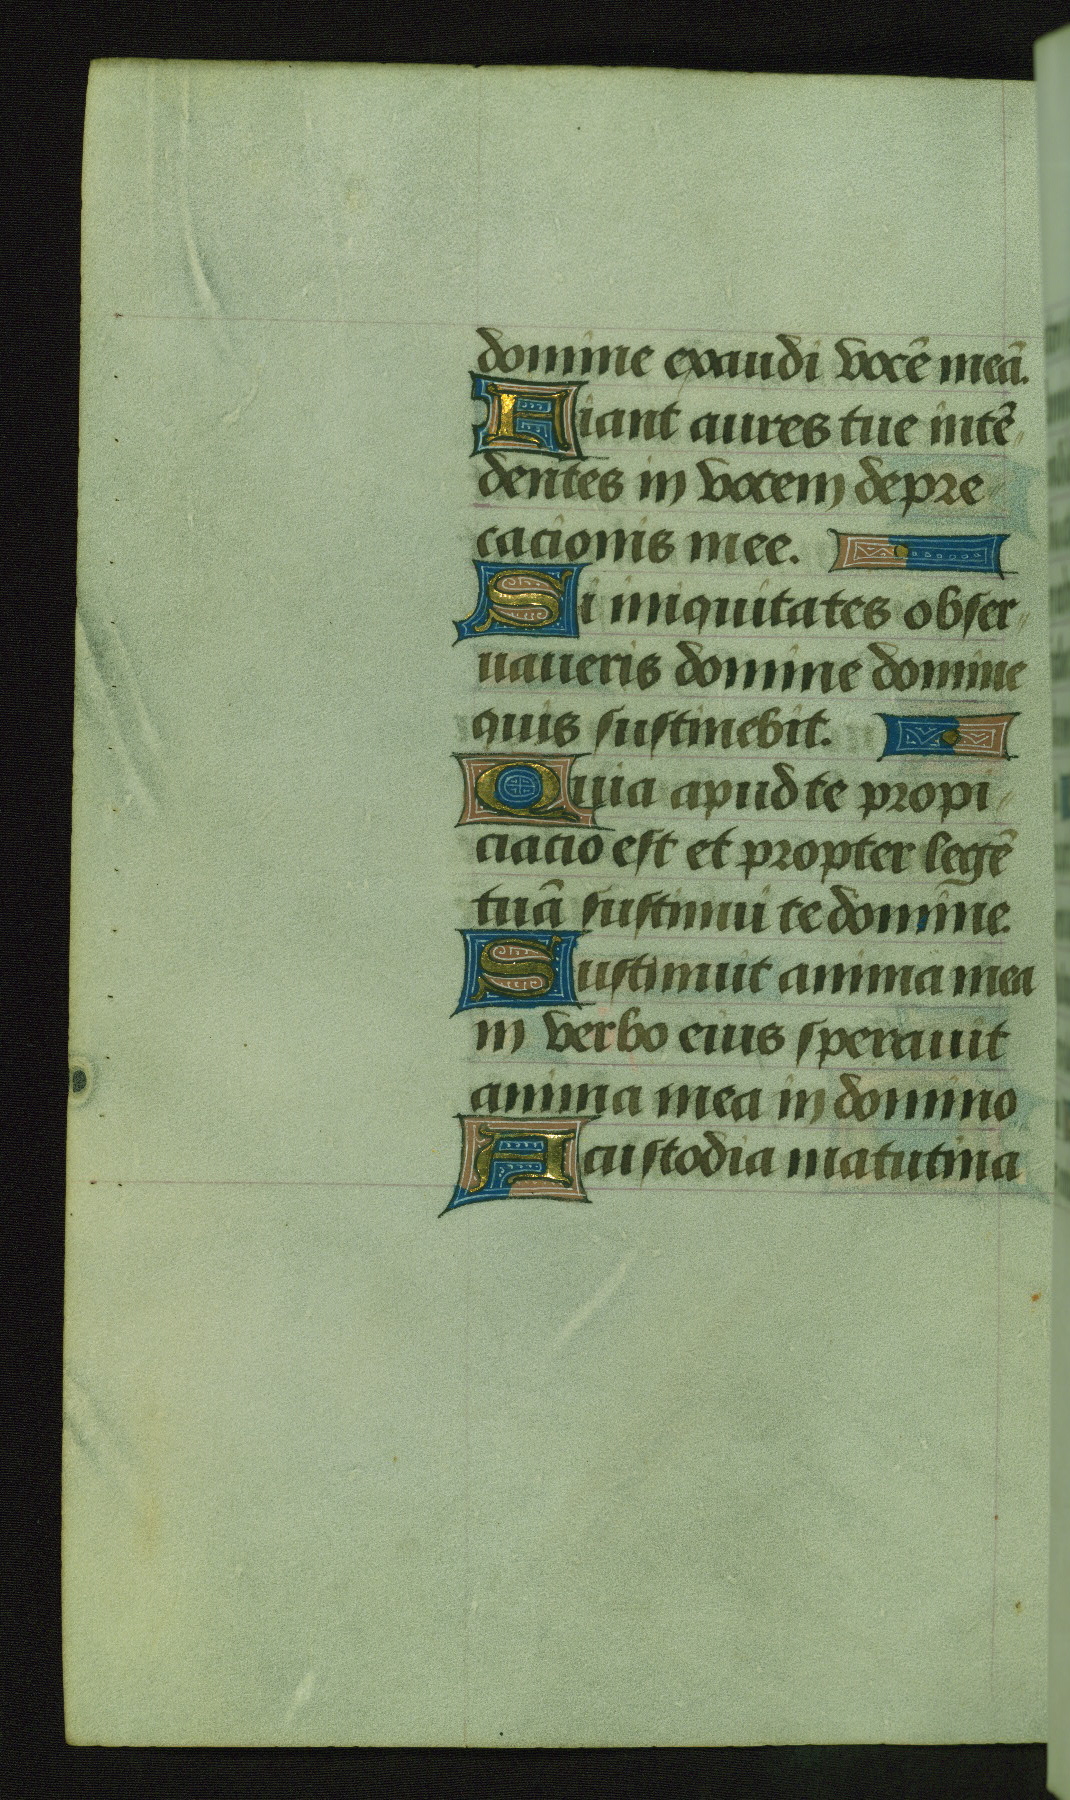 domine exaudi vocē meā.
Fiant aures tue intē
dentes in vocem depre
cacionis mee.
Si iniquitates obser
uaueris domine domine
quis sustinebit.
Quia apud te propi
ciacio est et propter legē
tuā sustinui te domine.
Sustinuit anima mea
in verbo eius sperauit
anima mea in domino
A custodia matutina